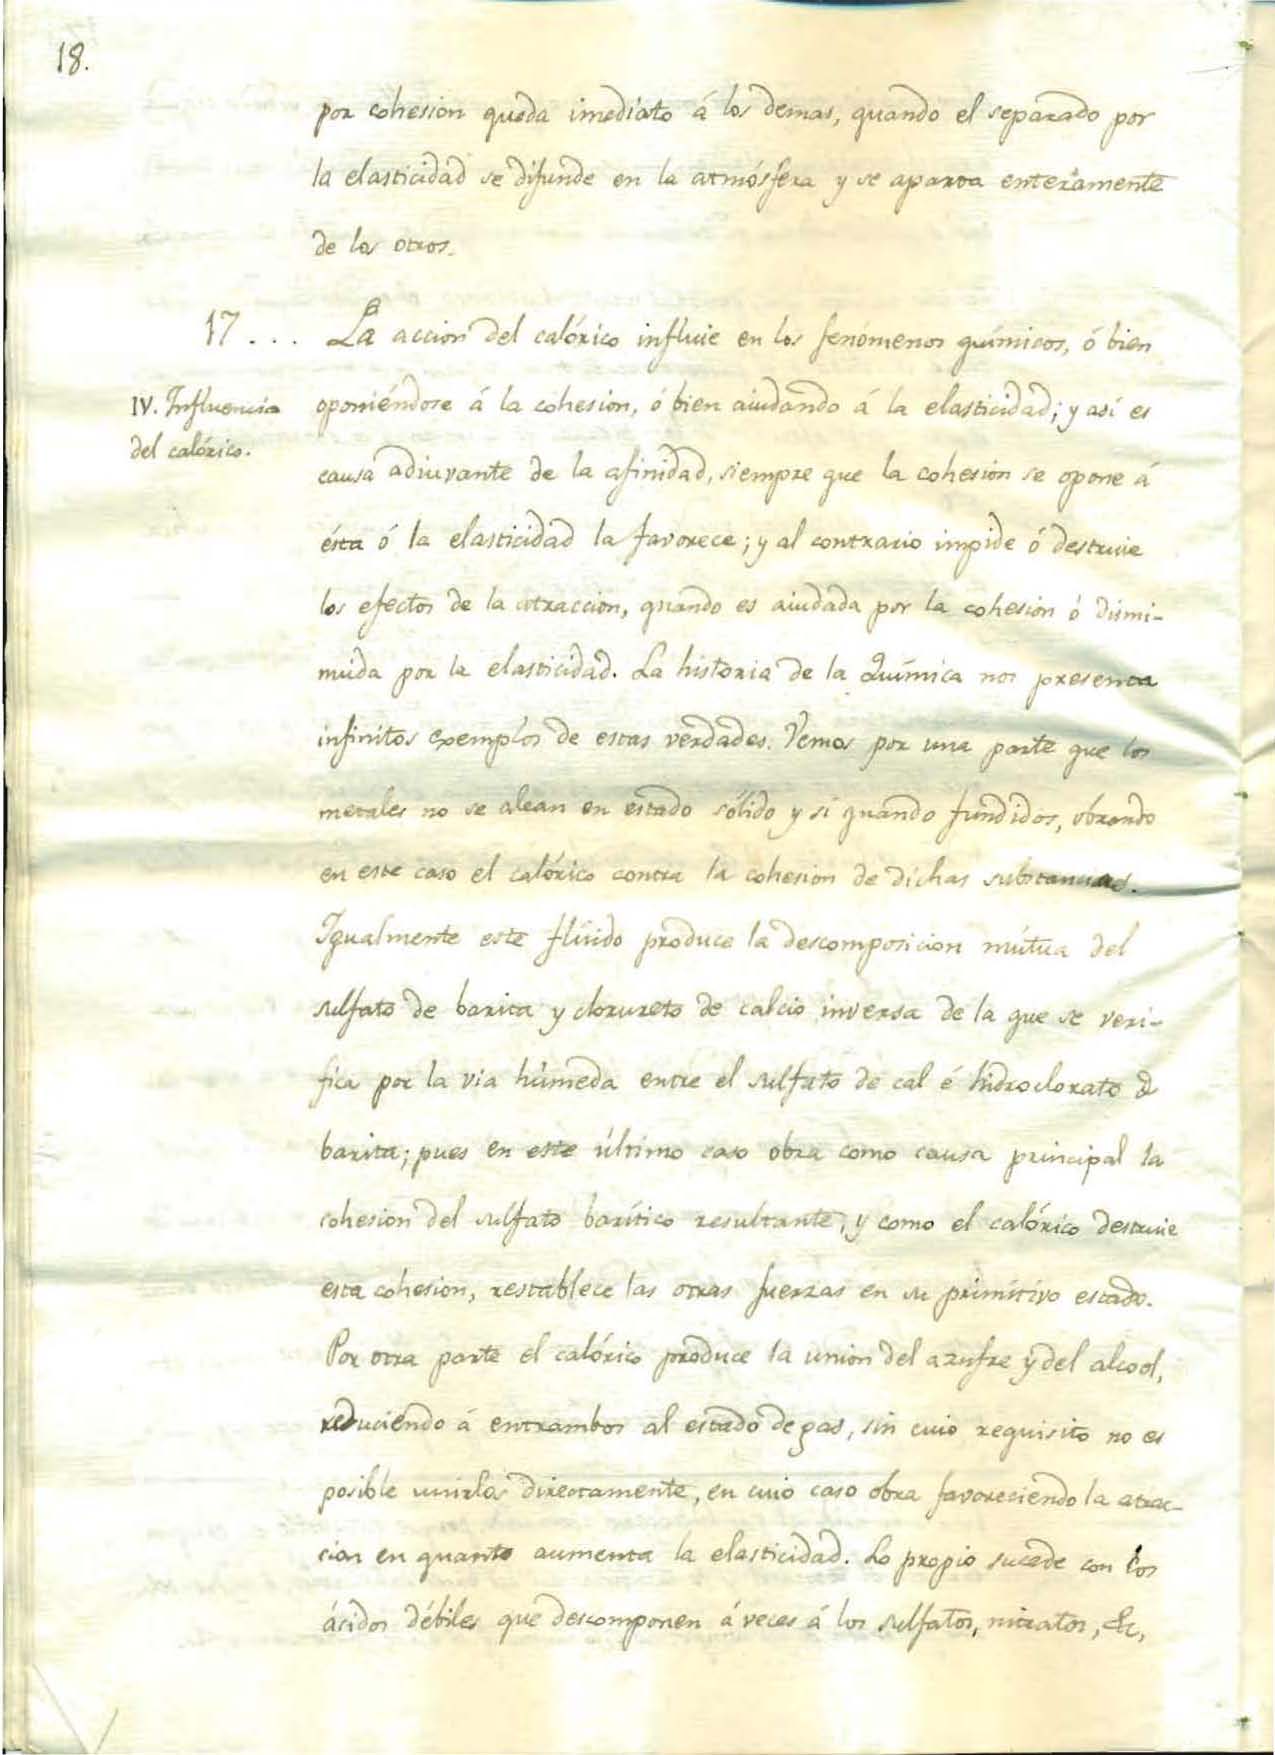 18.
por cohesion queda imediato á los demas, quando el separado por
la elasticidad se difunde en la atmósfera y se aparta enteramente
de los otros.
17... La accion del calórico influie en los fenómenos químicos, ó bien
IV. Influencia
del calórico.
oponiéndose á la cohesion, ó bien aiudando á la elasticidad; y así es
causa adiuvante de la afinidad, siempre que la cohesion se opone á
ésta ó la elasticidad la favorece; y al contrario impide ó destruie
los efectos de la atraccion, quando es aiudada por la cohesion ó dismi-
nuida por la elasticidad. La historia de la Química nos presenta
infinitos exemplos de estas verdades. Vemos por una parte que los
metales no se alean en estado sólido y sí quando fundidos, obrando
en este caso el calórico contra la cohesion de dichas substancias.
Igualmente este flúido produce la descomposicion mútua del
sulfato de barita y clorureto de calcio inversa de la que se veri-
fica por la via húmeda entre el sulfato de cal é hidroclorato de
barita; pues en este último caso obra como causa principal la
cohesion del sulfato barítico resultante, y como el calórico destruie
esta cohesion, restablece las otras fuerzas en su primitivo estado.
Por otra parte el calórico produce la union del azufre y del alcool,
reduciendo á entrambos al estado de gas, sin cuio requisito no es
posible unirlos directamente, en cuio caso obra favoreciendo la atrac-
cion en quanto aumenta la elasticidad. Lo propio sucede con los
ácidos débiles que descomponen á veces á los sulfatos, nitratos, &c,